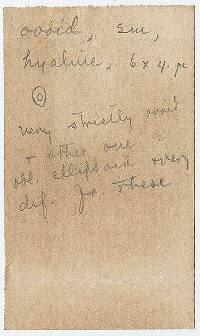 ovoid, sm,
hyaline, 6 x 4. µ
very strictly ovoid
& other one
obl. ellipsoid & very
dif. fr. these